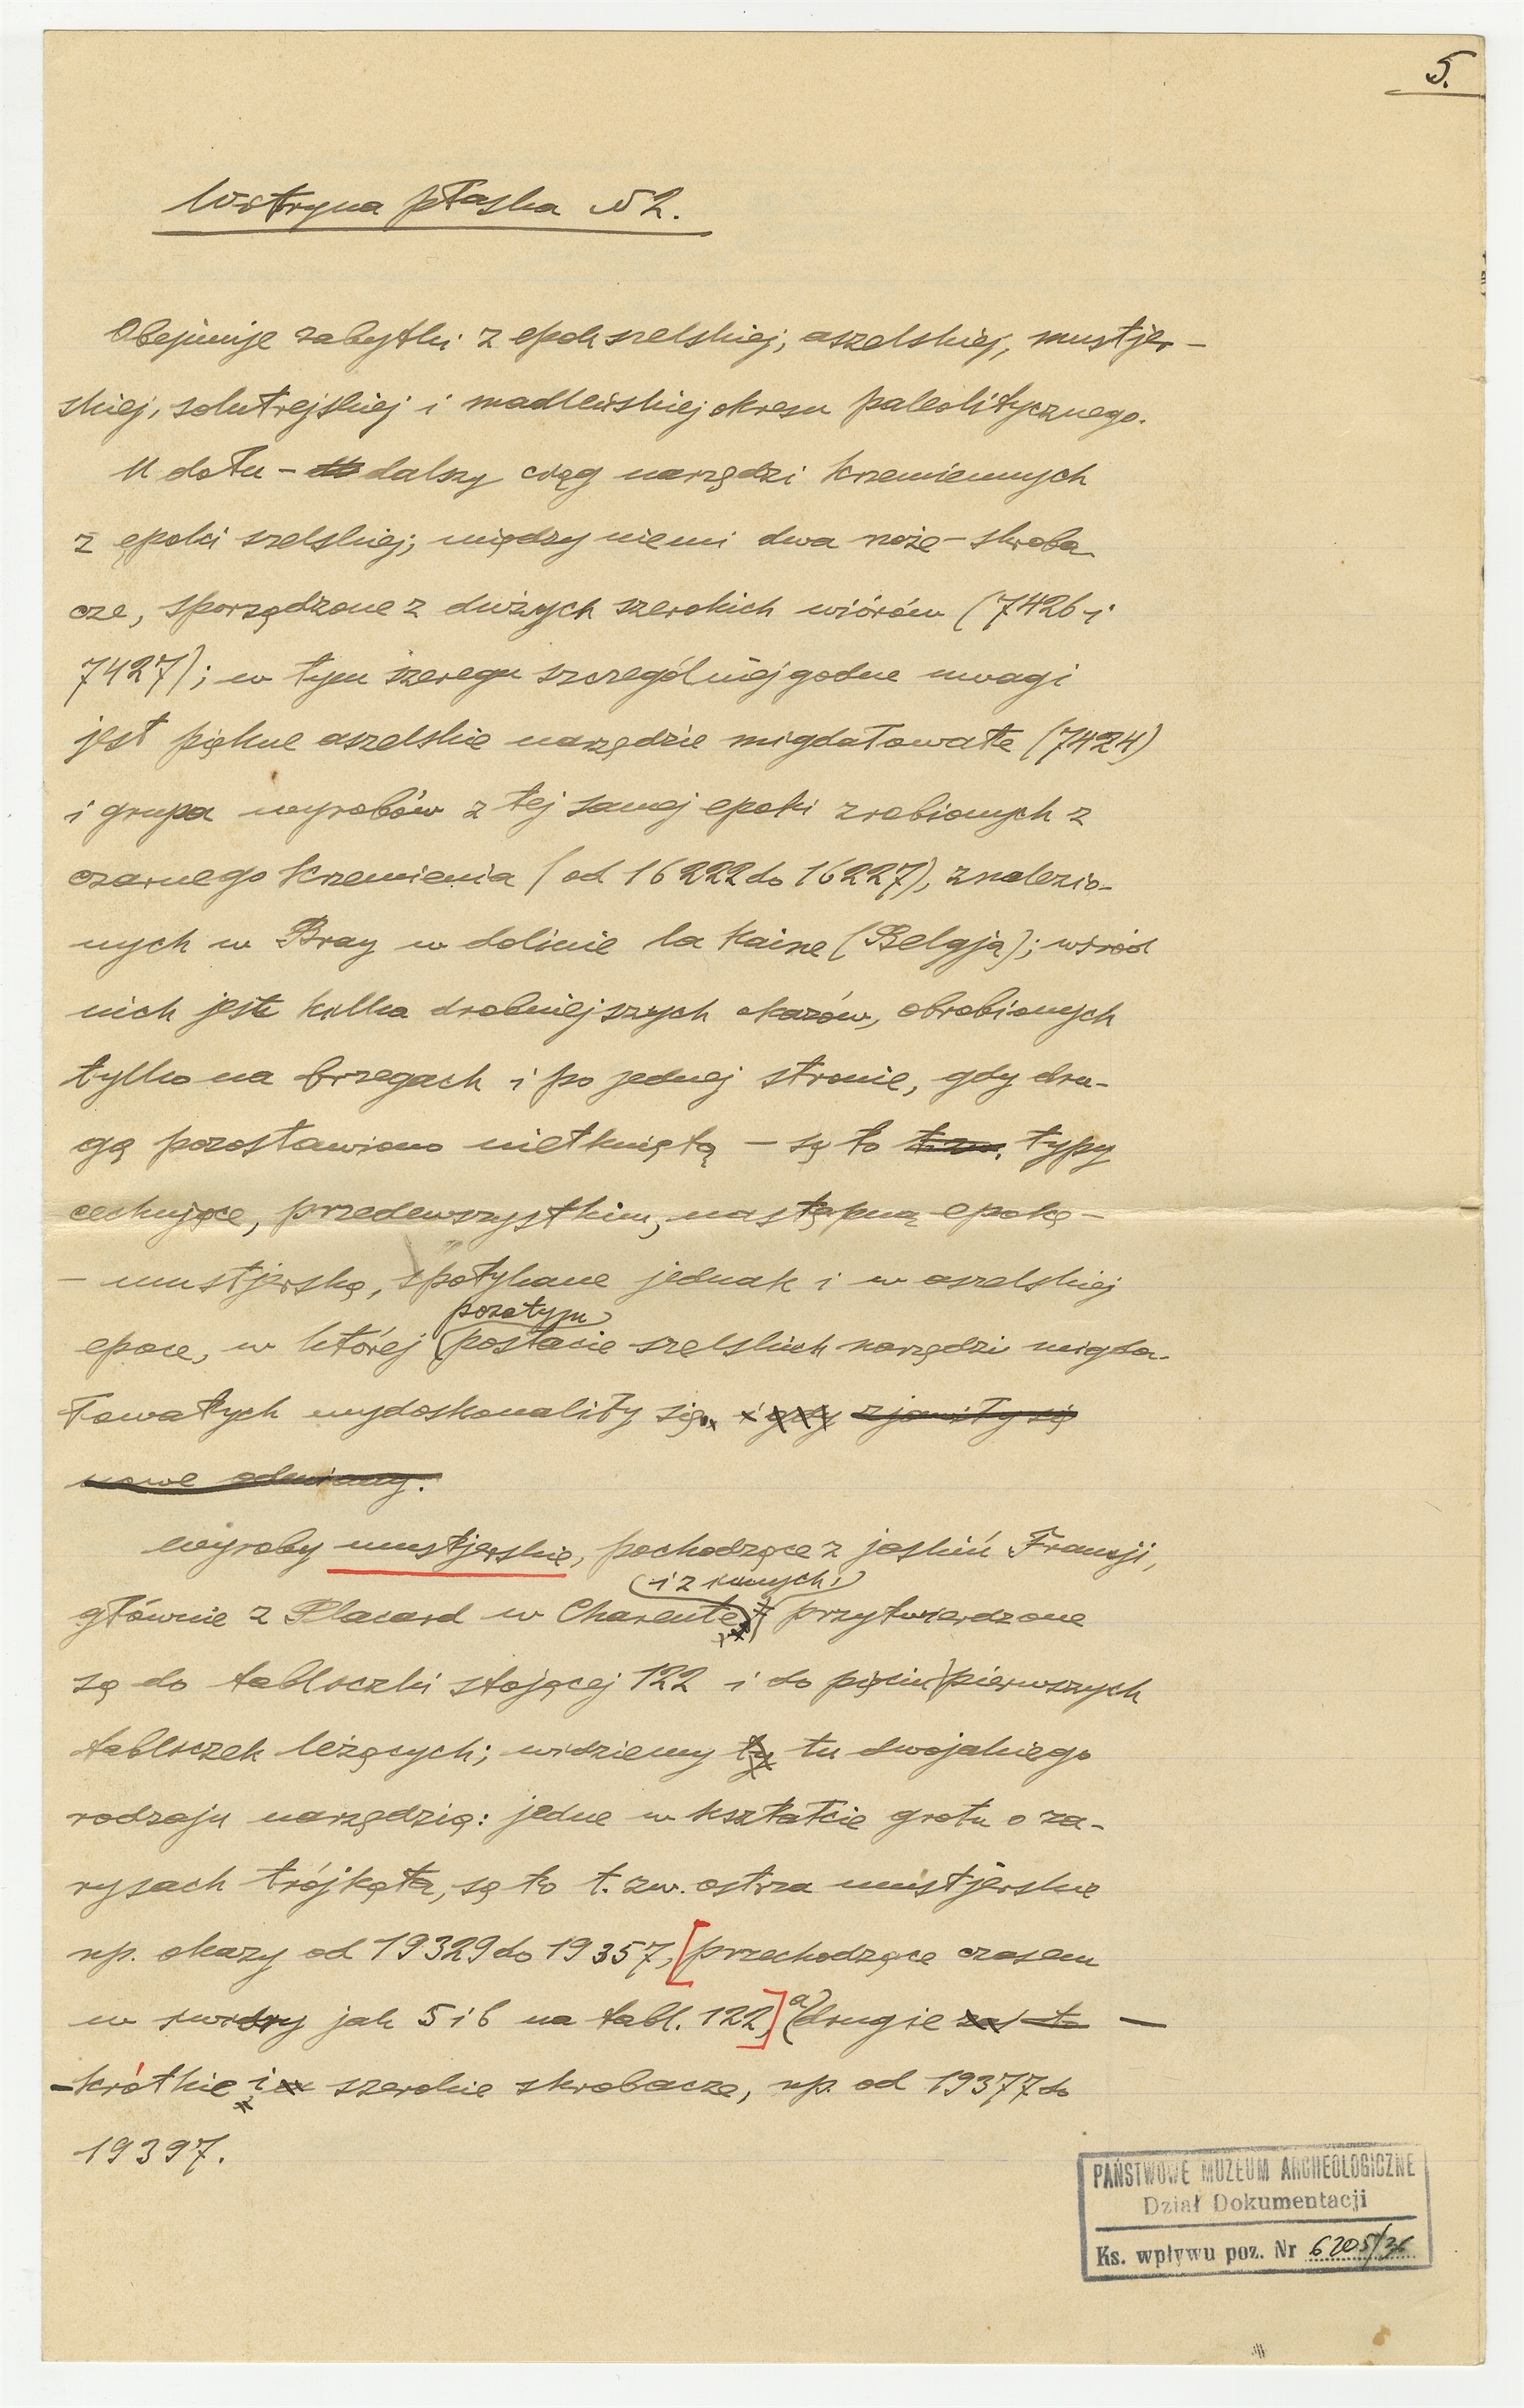 5.
Witryna płaska N 2.
Obejmuje zabytki z epok szelskiej, aszelskiej, mustjer-
skiej, solutrejskiej i madleńskiej okresu paleolitycznego.
U dołu - dalszy ciąg narzędzi krzemiennych
z epoki szelskiej; między niemi dwa noże - skroba-
cze, sporządzone z dużych szerokich wiórów (7426 i
7427); w tym szeregu szczególniej godne uwagi
jest piękne aszelskie narzędzie migdałowate (7424)
i grupa wyrobów z tej samej epoki zrobionych z
czarnego krzemienia (od 16222 do 16227), znalezio-
nych w Bray w dolinie la Haine (Belgja); wśród
nich jest kilka drobniejszych okazów, obrobionych
tylko na brzegach i po jednej stronie, gdy dru-
gą pozostawiono nietkniętą - są to t. zw. typy
cechujące, przedewszystkim, następną epokę -
- mustjerską, spotykane jednak i w aszelskiej
pozatym
epoce, w której postacie szelskich narzędzi migda-
łowatych wydoskonaliły się. i gdy zjawiły się
nowe odmiany.
Wyroby mustjerskie, pochodzące z jaskiń Francji,
i z innych,
głównie z Placard w Charente, przytwierdzone
są do tabliczki stojącej 122 i do pięciu pierwszych
tabliczek leżących; widzimy ty tu dwojakiego
rodzaju narzędzia: jedne w kształcie grotu o za-
rysach trójkąta, są to t. zw. ostrza mustjerskie
np. okazy od 19329 do 19357, [przechodzące czasem
w świdry jak 5 i 6 na tabl. 122,] a drugie zaś -
- krótkie i szerokie skrobacze, np. od 19377 do
19397.
PAŃSTWOWE MUZEUM ARCHEOLOGICZNE
Dział Dokumentacji
Ks. wpływu poz. Nr 6205/36